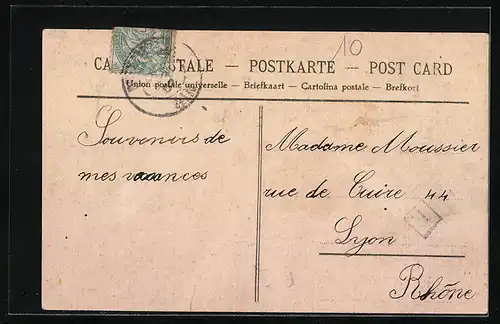 10
CARTE POSTALE — POSTKARTE — POST CARD
Union postale universelle — Briefkaart — Cartolina postale — Brefkort
Souvenirs de
mes vacances
Madame Moussier
rue de Cuire 44
1
Lyon
Rhône